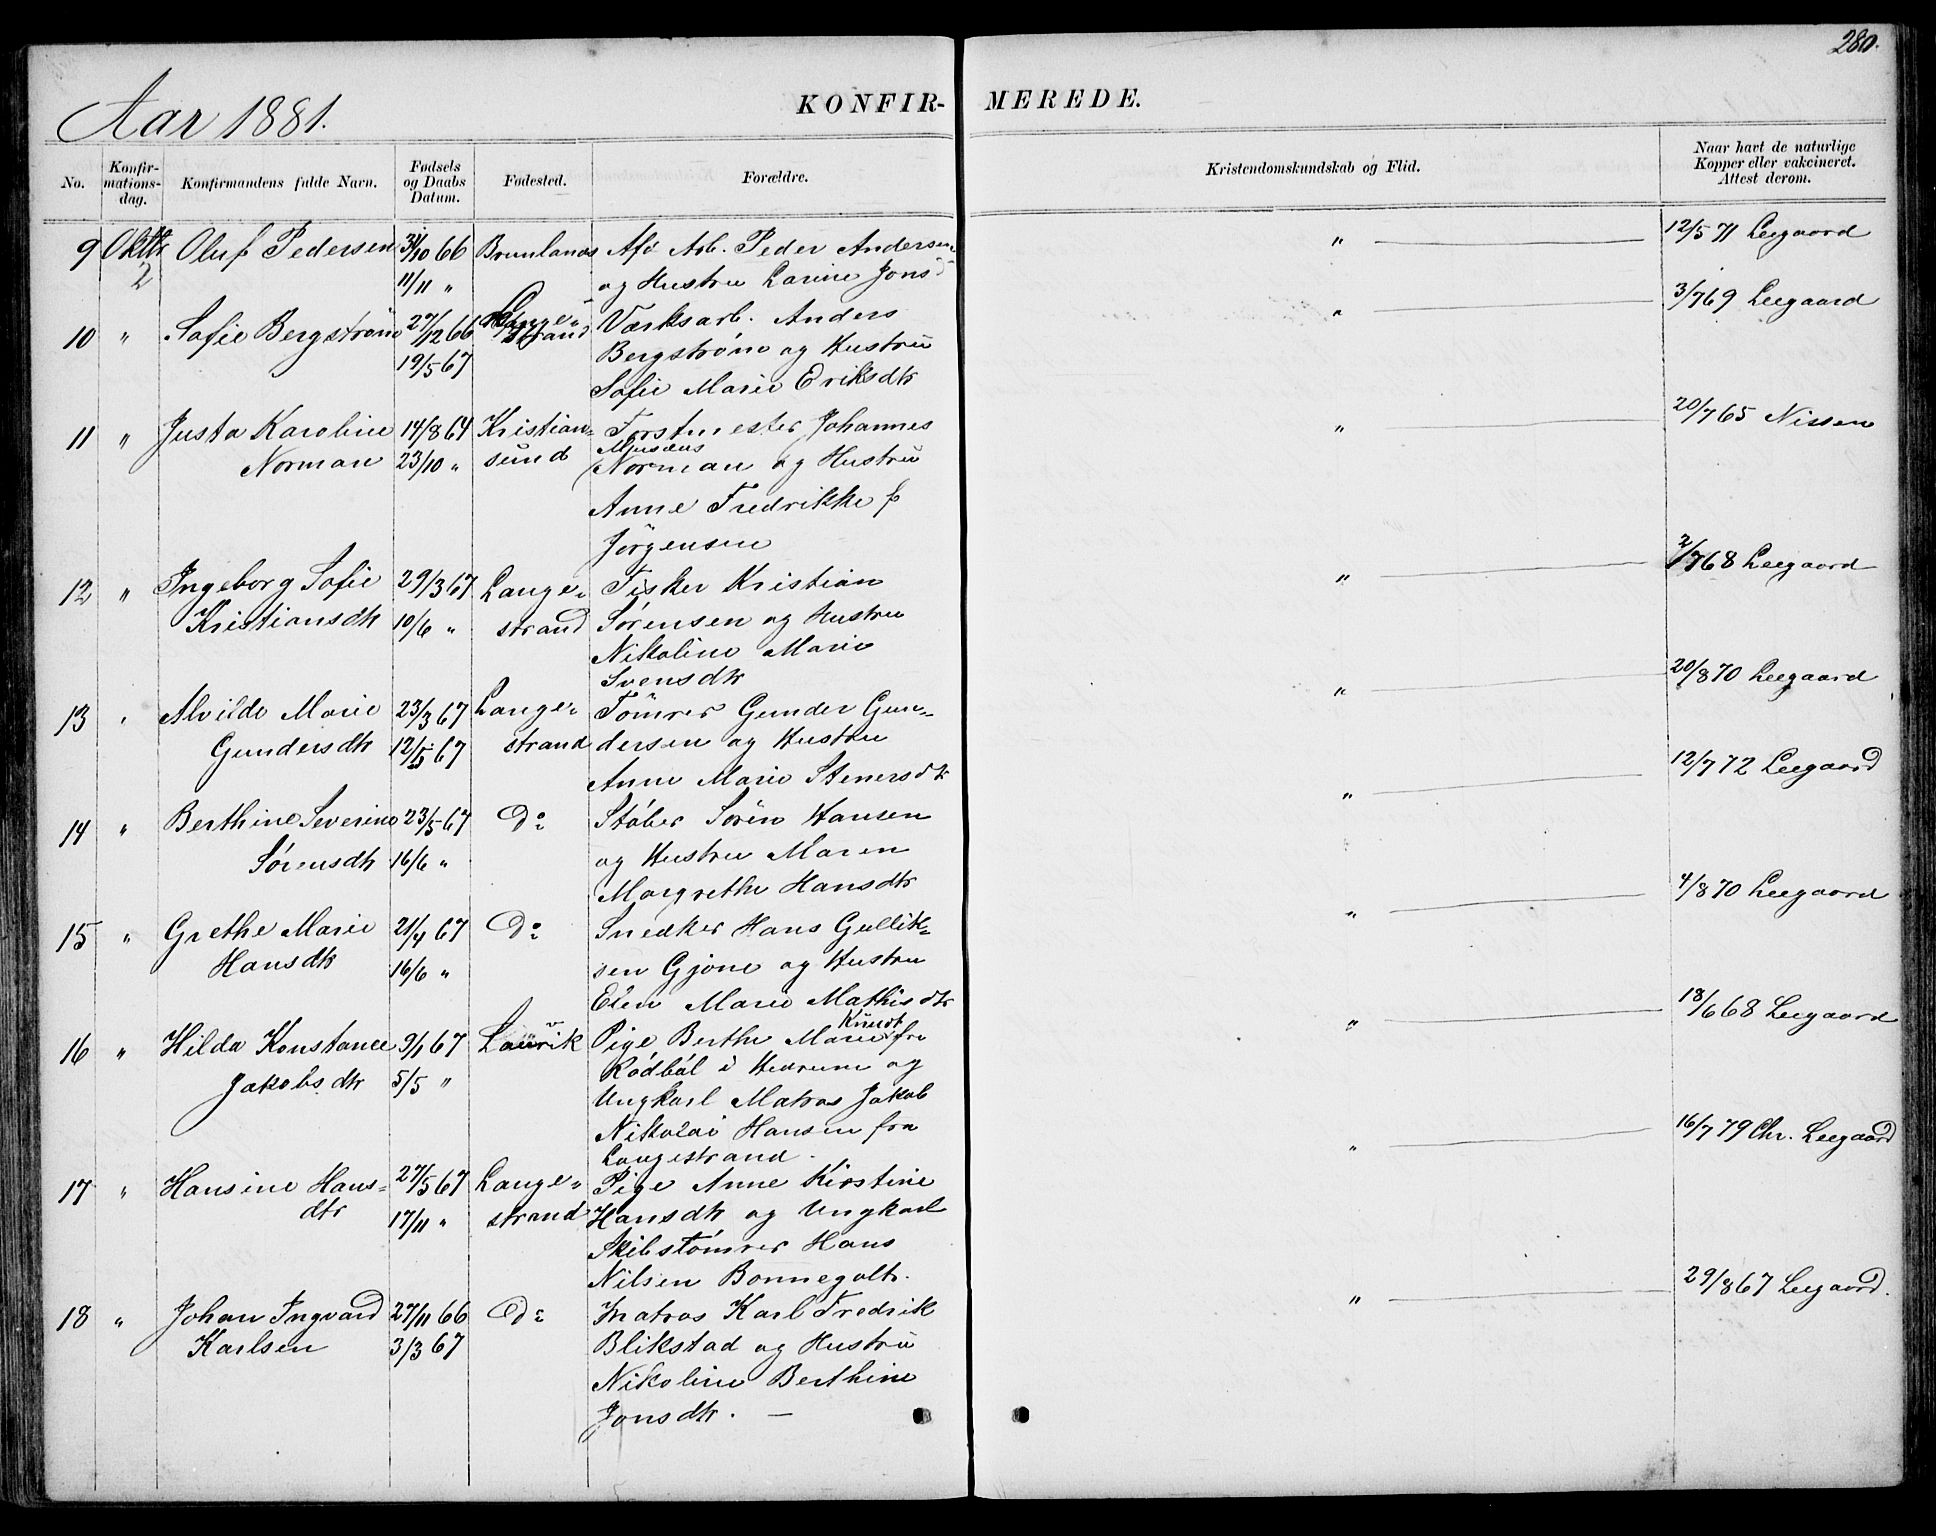 280.
Aar 1881.
KONFIR- MEREDE.
No.
Konfir-
mations-
dag.
Konfirmandens fulde Navn.
Fødsels
og Daabs
Datum.
Fødested.
Forældre.
Kristendomskundskab og Flid.
Naar havt de naturlige
Kopper eller vakcineret.
Attest derom.
9 Oktbr Oluf Pedersen 31/10 66 Brunlanæs Afd Arb. Peder Andersen " 12/5 71 Leegaard
2 11/11 " og Hustru Larine Jonsd
10 " Sofie Bergstrøm 27/12 66 Lange- Værksarb. Anders " 3/7 69 Leegaard
19/5 67 strand Bergstrøm og Hustru
Sofie Marie Eriksdtr
11 " Justa Karoline 14/8 64 Kristian- Forstmester Johannes " 20/7 65 Nissen
Norman 23/10 " sund Norman og Hustru
Anne Fredrikke f
Jørgensen
12 " Ingeborg Sofie 29/3 67 Lange- Fisker Kristian " 2/7 68 Leegaard
Kristiansdtr 10/6 " strand Sørensen og Hustru
Nikoline Marie
Svensdtr
13 " Alvilde Marie 23/3 67 Lange- Tömrer Gunder Gun- " 20/8 70 Leegaard
Gundersdtr 12/5 67 strand dersen og Hustru
Anne Marie Stenersdtr
14 " Berthine Severine 23/5 67 Do Støber Sören Hansen " 12/7 72 Leegaard
Sörensdtr 16/6 " og Hustru Maren
Margrethe Hansdtr
15 " Grethe Marie 21/4 67 Do Snedker Hans Gullik- " 4/8 70 Leegaard
Hansdtr 16/6 " sen Gjone og Hustru
Elen Marie Mathisdtr
16 " Hilda Konstance 9/1 67 Laurvik Pige Berthe Marie Knudt fra " 18/6 68 Leegaard
Jakobsdtr 5/5 " Rødbøl i Hedrum og
Ungkarl Matros Jakob
Nikolai Hansen fra
Langestrand.
17 " Hansine Hans- 27/5 67 Lange- Pige Anne Kirstine " 16/7 79 Chr. Leegaard
dtr 17/11 " strand Hansdtr og Ungkarl
Skibstømrer Hans
Nilsen Bonnegolt.
18 " Johan Ingvard 27/11 66 Do Matros Karl Fredrik " 29/8 67 Leegaard.
Karlsen 3/3 67 Blikstad og Hustru
Nikoline Berthine
Jonsdtr. —